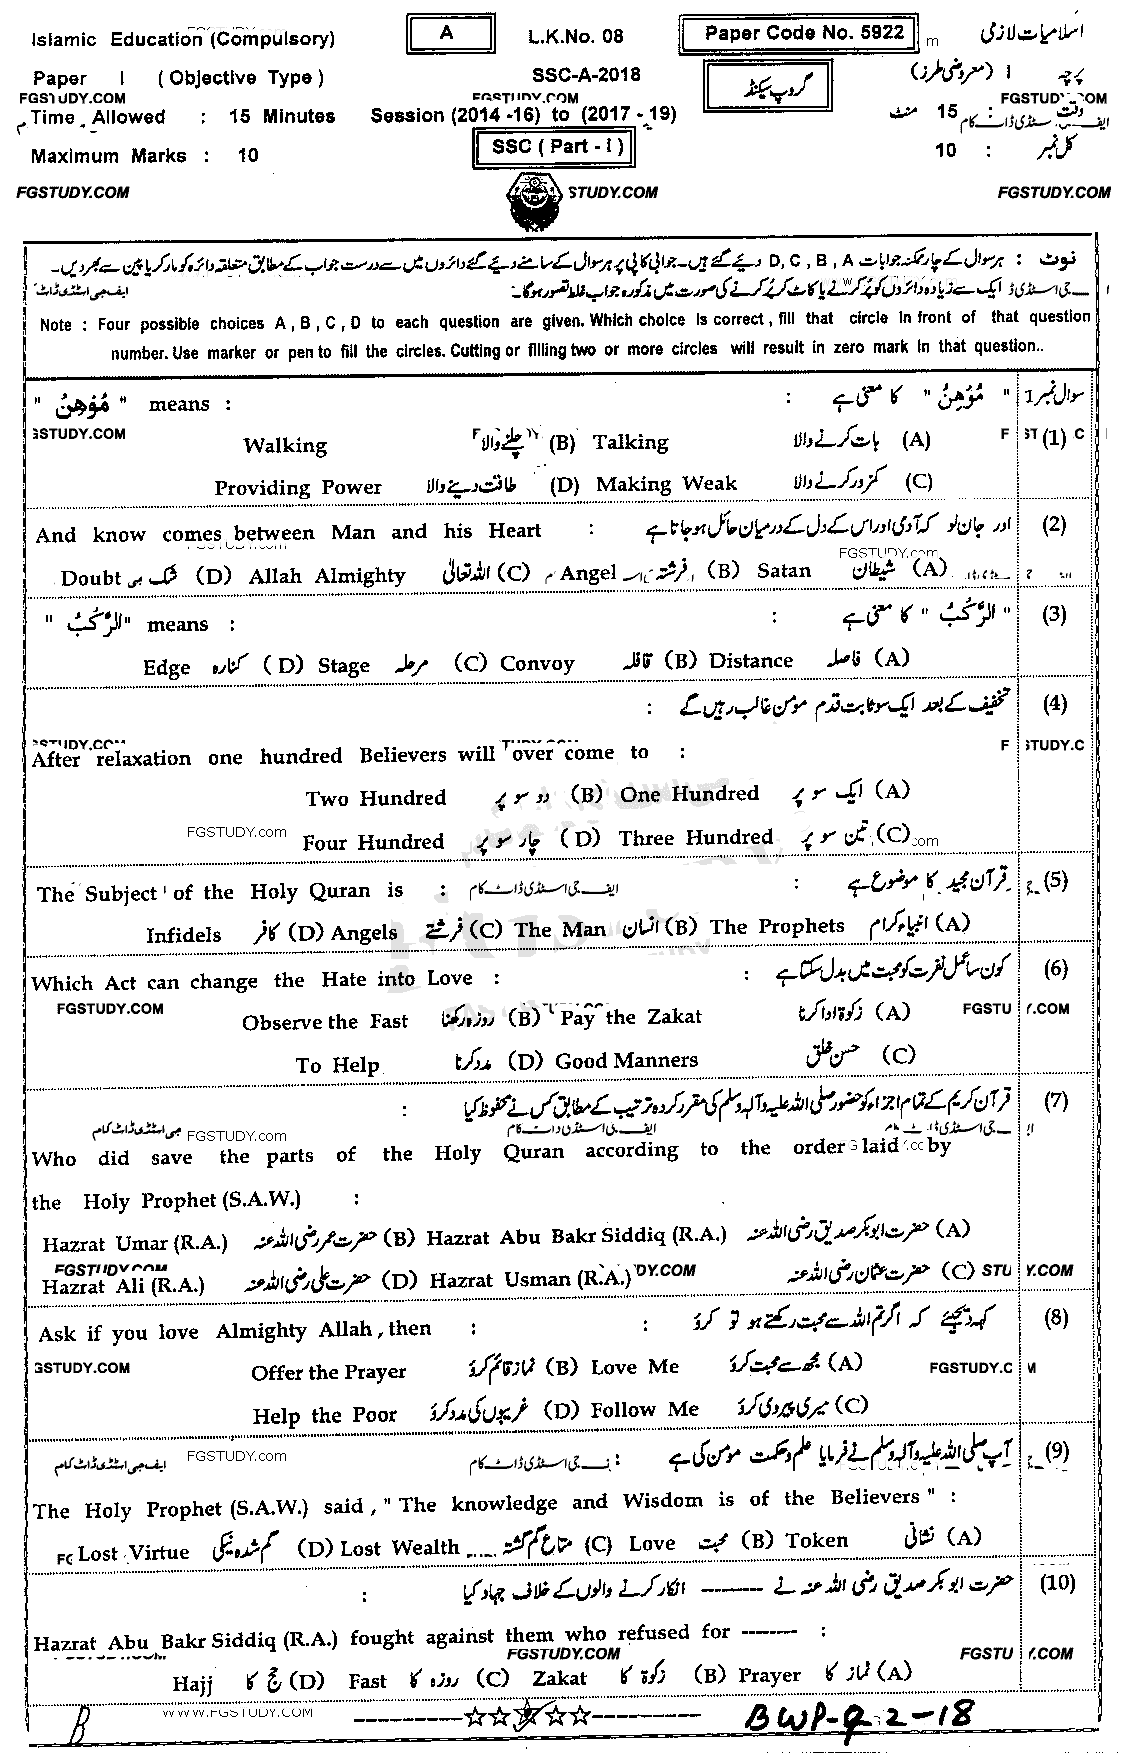 Islamic Education (Compulsory)
A
L.K.No. 08
Paper Code No. 5922
اسلامیات لازمی
Paper I ( Objective Type )
SSC-A-2018
گروپ سیکنڈ
پرچہ I (معروضی طرز)
FGSTUDY.COM FGSTUDY.COM FGSTUDY.COM
Time Allowed : 15 Minutes
Session (2014 -16) to (2017 - 19)
وقت : 15 منٹ
ایف جی اسٹڈی ڈاٹ کام
Maximum Marks : 10
SSC ( Part - I )
کل نمبر : 10
FGSTUDY.COM STUDY.COM FGSTUDY.COM
نوٹ : ہر سوال کے چار ممکنہ جوابات D, C, B, A دیئے گئے ہیں۔ جوابی کاپی پر ہر سوال کے سامنے دیئے گئے دائروں میں سے درست جواب کے مطابق متعلقہ دائرہ کو مارکر یا پین سے بھر دیں۔
ایک سے زیادہ دائروں کو پُر کرنے یا کاٹ کر پُر کرنے کی صورت میں مذکورہ جواب غلط تصور ہوگا۔
Note : Four possible choices A , B , C , D to each question are given. Which choice is correct , fill that circle in front of that question
number. Use marker or pen to fill the circles. Cutting or filling two or more circles will result in zero mark in that question..
سوال نمبر 1 " مُؤْهِنُ " کا معنی ہے :
" مُؤْهِنُ " means :
GSTUDY.COM
(1) (A) بات کرنے والا Talking (B) چلنے والا Walking
(C) کمزور کرنے والا Making Weak (D) طاقت دینے والا Providing Power
(2) اور جان لو کہ آدمی اور اس کے دل کے درمیان حائل ہو جاتا ہے :
And know comes between Man and his Heart
FGSTUDY.com
(A) شیطان Satan (B) فرشتہ Angel (C) اللہ تعالیٰ Allah Almighty (D) شک Doubt
(3) " الرَّكْبُ " کا معنی ہے :
" الرَّكْبُ " means :
(A) فاصلہ Distance (B) قافلہ Convoy (C) مرحلہ Stage (D) کنارہ Edge
(4) تخفیف کے بعد ایک سو ثابت قدم مومن غالب رہیں گے :
After relaxation one hundred Believers will over come to :
(A) ایک سو پر One Hundred (B) دو سو پر Two Hundred
FGSTUDY.com
(C) تین سو پر Three Hundred (D) چار سو پر Four Hundred
(5) قرآن مجید کا موضوع ہے :
The Subject of the Holy Quran is : ایف جی اسٹڈی ڈاٹ کام
(A) انبیاء کرام The Prophets (B) انسان The Man (C) فرشتے Angels (D) کافر Infidels
(6) کون سا عمل نفرت کو محبت میں بدل سکتا ہے :
Which Act can change the Hate into Love :
FGSTUDY.COM
(A) زکوٰۃ ادا کرنا Pay the Zakat (B) روزہ رکھنا Observe the Fast
(C) حسن خلق Good Manners (D) مدد کرنا To Help
(7) قرآن کریم کے تمام اجزاء کو حضور صلی اللہ علیہ وآلہ وسلم کی مقرر کردہ ترتیب کے مطابق کس نے محفوظ کیا :
FGSTUDY.com
Who did save the parts of the Holy Quran according to the order laid by
the Holy Prophet (S.A.W.) :
(A) حضرت ابوبکر صدیق رضی اللہ عنہ Hazrat Abu Bakr Siddiq (R.A.) (B) حضرت عمر رضی اللہ عنہ Hazrat Umar (R.A.)
FGSTUDY.COM
(C) حضرت عثمان رضی اللہ عنہ Hazrat Usman (R.A.) (D) حضرت علی رضی اللہ عنہ Hazrat Ali (R.A.)
(8) کہہ دیجیئے کہ اگر تم اللہ سے محبت رکھتے ہو تو کرو :
Ask if you love Almighty Allah , then :
GSTUDY.COM
(A) مجھ سے محبت کرو Love Me (B) نماز قائم کرو Offer the Prayer
(C) میری پیروی کرو Follow Me (D) غریبوں کی مدد کرو Help the Poor
(9) آپ صلی اللہ علیہ وآلہ وسلم نے فرمایا علم و حکمت مومن کی ہے :
FGSTUDY.com
The Holy Prophet (S.A.W.) said , " The knowledge and Wisdom is of the Believers " :
(A) نشانی Token (B) محبت Love (C) متاع گم گشتہ Lost Wealth (D) گم شدہ نیکی Lost Virtue
(10) حضرت ابوبکر صدیق رضی اللہ عنہ نے -------- انکار کرنے والوں کے خلاف جہاد کیا :
Hazrat Abu Bakr Siddiq (R.A.) fought against them who refused for ------- :
FGSTUDY.COM
(A) نماز کا Prayer (B) زکوٰۃ کا Zakat (C) روزہ کا Fast (D) حج کا Hajj
WWW.FGSTUDY.COM
B
BWP-9-2-18